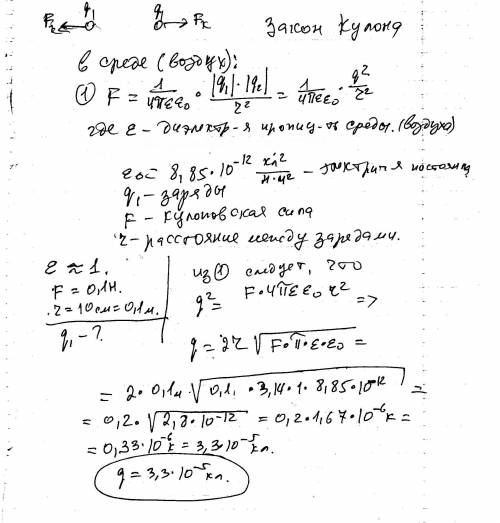 Fк q₁ q₁ Fк Закон Кулона
в среде (воздух):
① F = 1/4πεε₀ · |q₁|·|q₂|/r² = 1/4πεε₀ · q²/r²
где ε – диэлектр-я прониц-ть среды. (воздух)
ε₀ = 8,85·10⁻¹² Кл²/Н·м² – электрич-я постоянн
q₁ – заряды
F – кулоновская сила
r – расстояние между зарядами.
ε ≈ 1.
F = 0,1Н.
r = 10см = 0,1м.
q₁ – ?
из ① следует, что
q² = F·4πεε₀ r² =>
q = 2r √F·π·ε·ε₀ =
= 2·0,1м √0,1·3,14·1·8,85·10⁻¹² =
= 0,2·√2,8·10⁻¹² = 0,2·1,67·10⁻⁶к =
= 0,33·10⁻⁶к = 3,3·10⁻⁵ кл.
q = 3,3·10⁻⁵ кл.